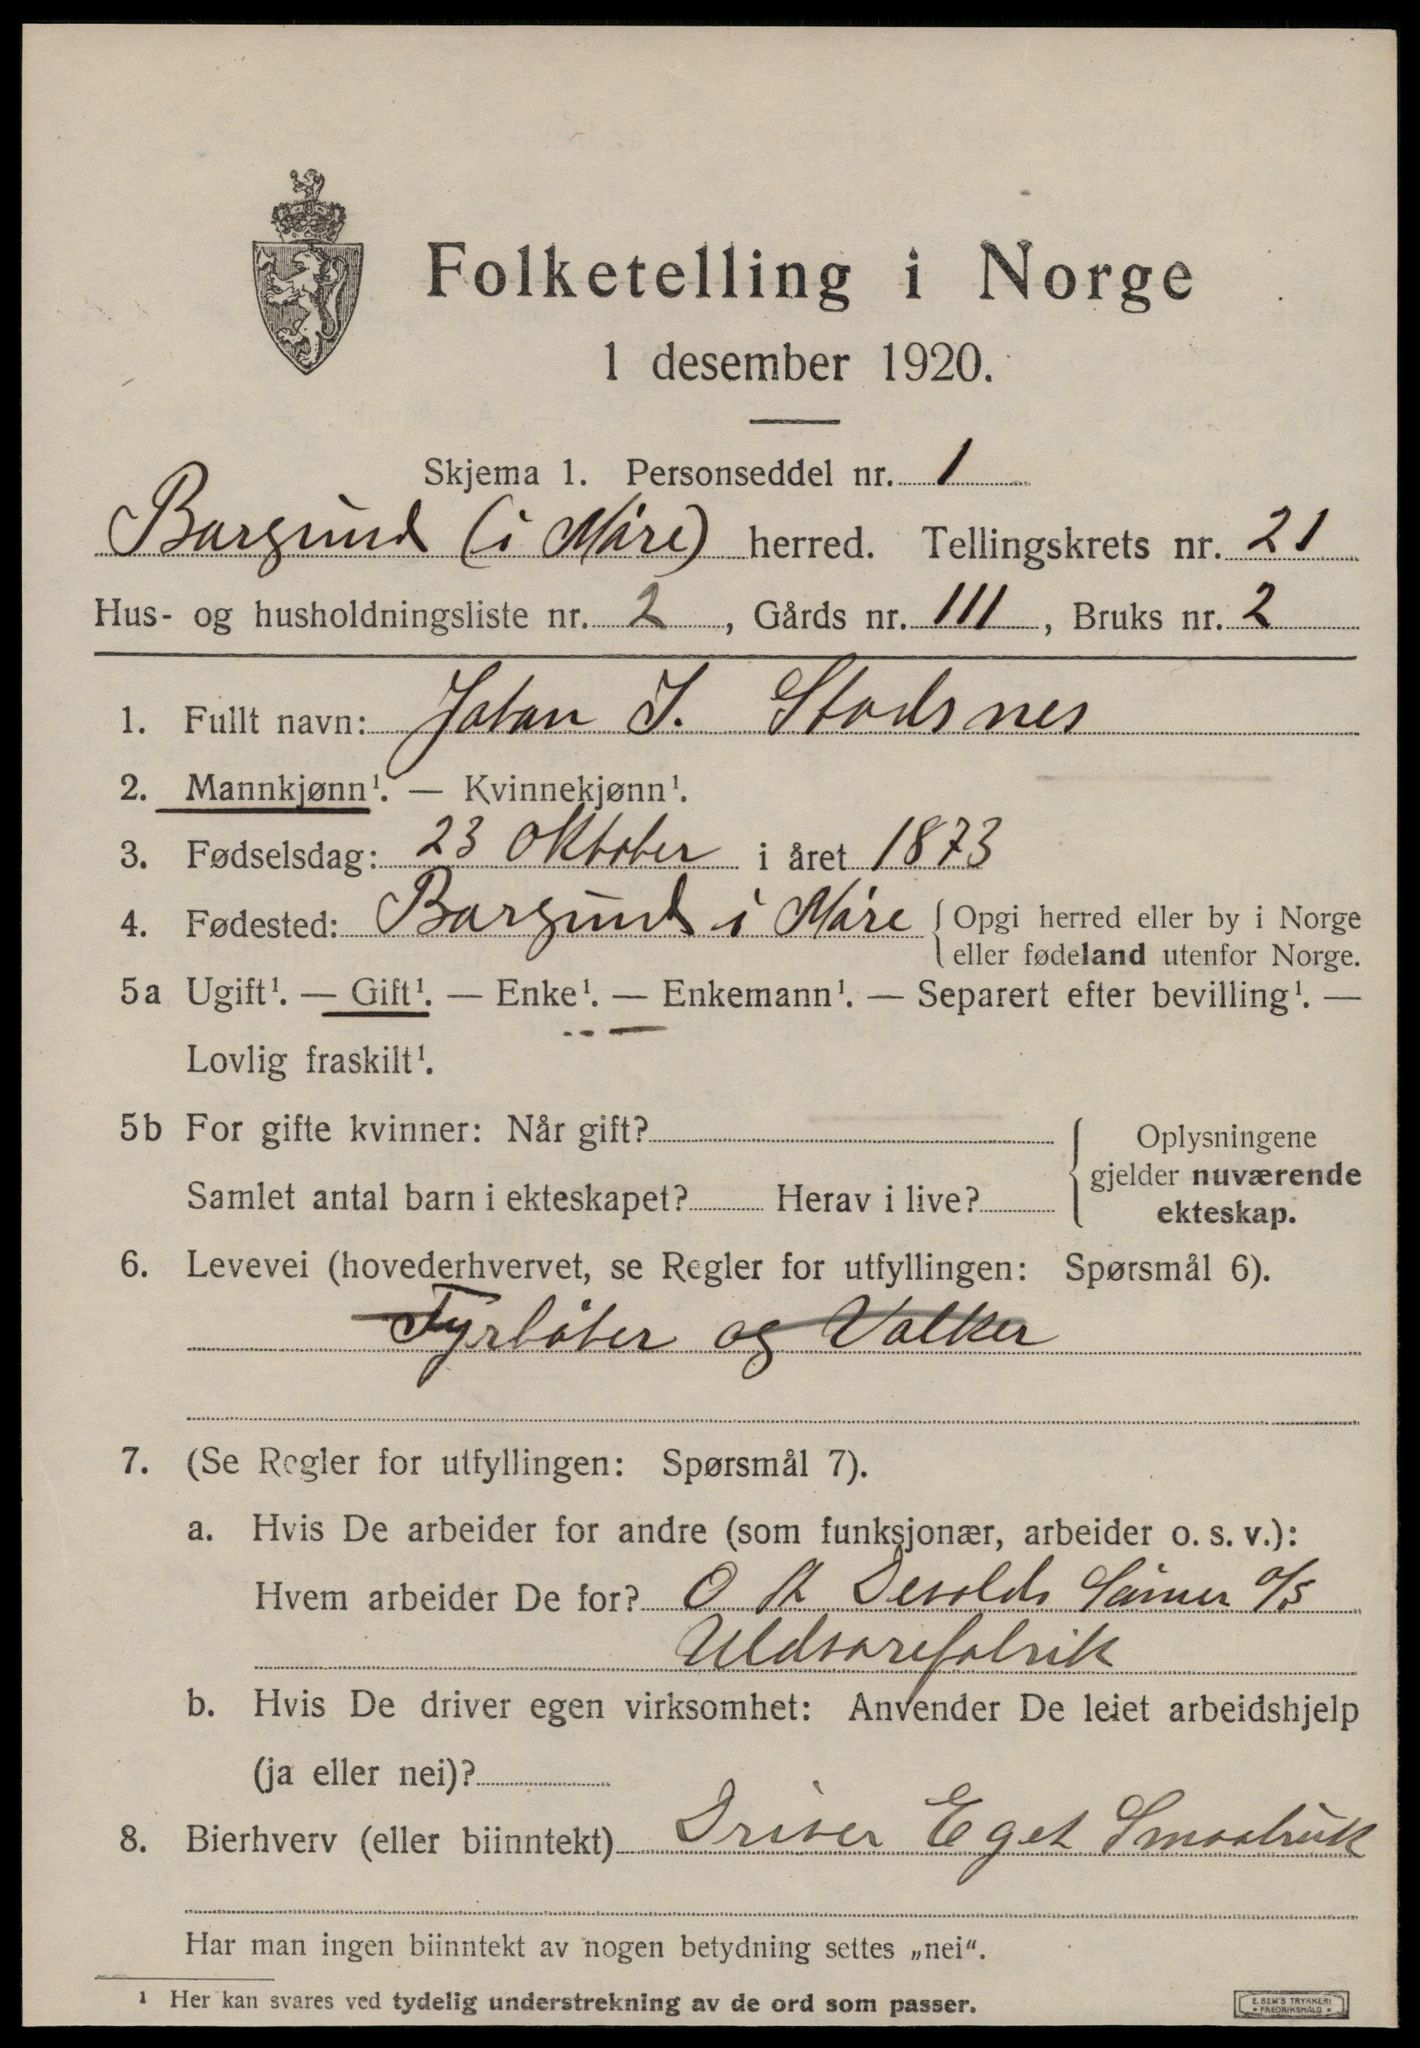 Folketelling i Norge
1 desember 1920.
Skjema 1. Personseddel nr. 1
Borgund (i Møre) herred. Tellingskrets nr. 21
Hus- og husholdningsliste nr. 2, Gårds nr. 111, Bruks nr. 2
1. Fullt navn: Johan I. Stadsnes
2. Mannkjønn¹. — Kvinnekjønn¹.
3. Fødselsdag: 23 Oktober i året 1873
4. Fødested: Borgund i Møre { Opgi herred eller by i Norge
eller fødeland utenfor Norge.
5a Ugift¹. — Gift¹. — Enke¹. — Enkemann¹. — Separert efter bevilling¹. —
Lovlig fraskilt¹.
5b For gifte kvinner: Når gift?
Samlet antal barn i ekteskapet? Herav i live?
{ Oplysningene
gjelder nuværende
ekteskap.
6. Levevei (hovederhvervet, se Regler for utfyllingen: Spørsmål 6).
Fyrbøter og Valker
7. (Se Regler for utfyllingen: Spørsmål 7).
a. Hvis De arbeider for andre (som funksjonær, arbeider o. s. v.):
Hvem arbeider De for? O A Devolds Sønner a/s
Uldvarefabrik
b. Hvis De driver egen virksomhet: Anvender De leiet arbeidshjelp
(ja eller nei)?
8. Bierhverv (eller biinntekt) Driver Eget Smaabruk
Har man ingen biinntekt av nogen betydning settes „nei“.
¹ Her kan svares ved tydelig understrekning av de ord som passer.
E. SEM'S TRYKKERI
• FREDRIKSHALD •